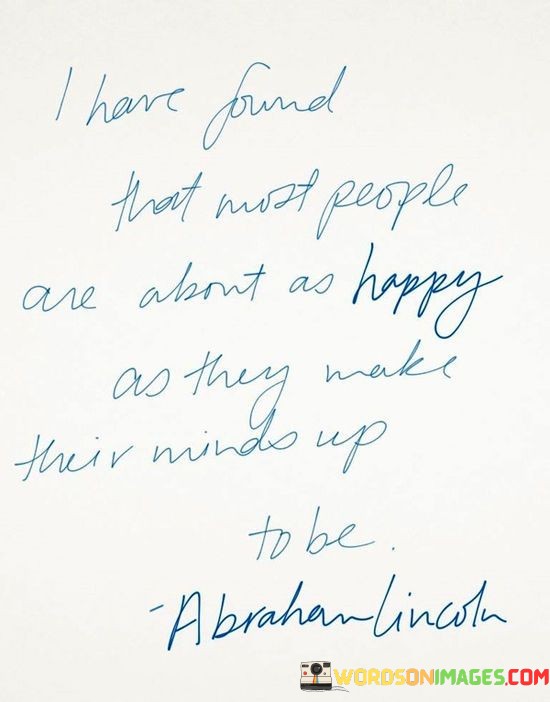 I have found
that most people
are about as happy
as they make
their minds up
to be.
-Abraham Lincoln
WORDSONIMAGES.COM